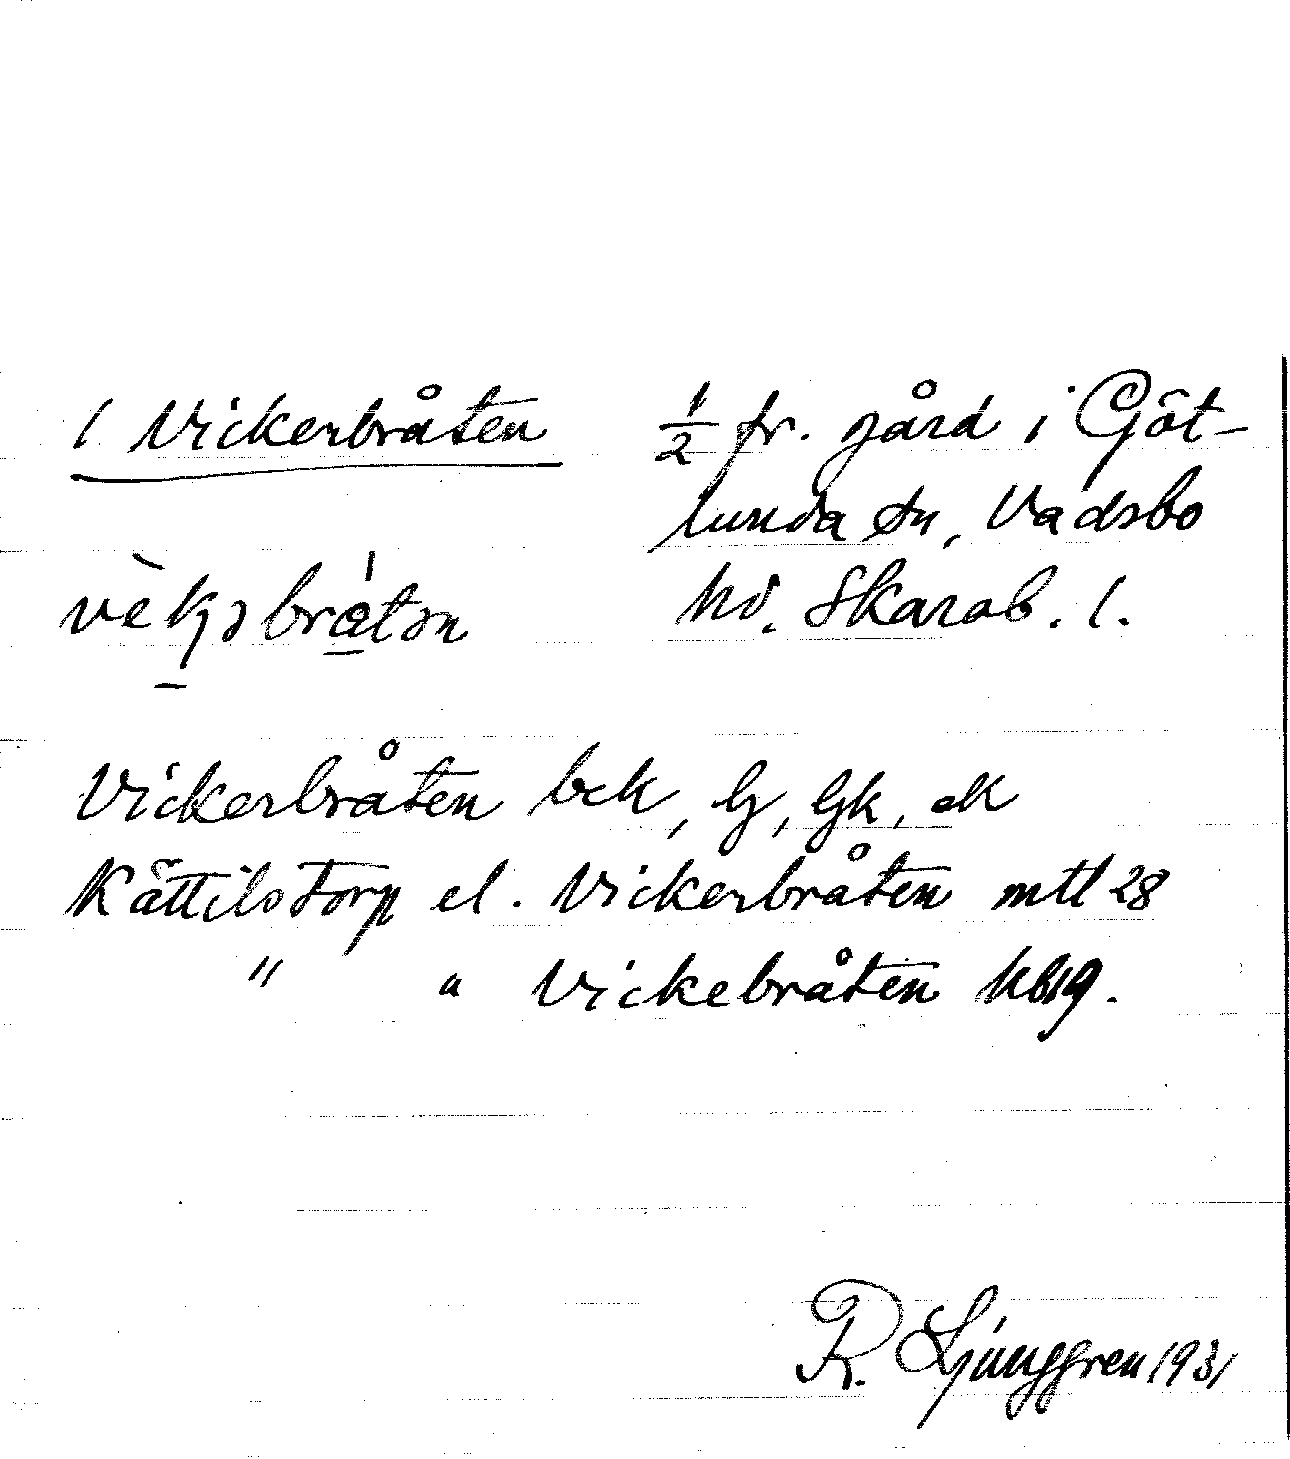 1 Vickerbråten
1/2 fr. gård i Göt-
lunda sn, Vadsbo
hd. Skarab. l.
Vickerbråten bck, G, Gk, ek
Kättilstorp el. Vickerbråten mtl 28
" " Vickebråten hb19.
R. Ljunggren 1931